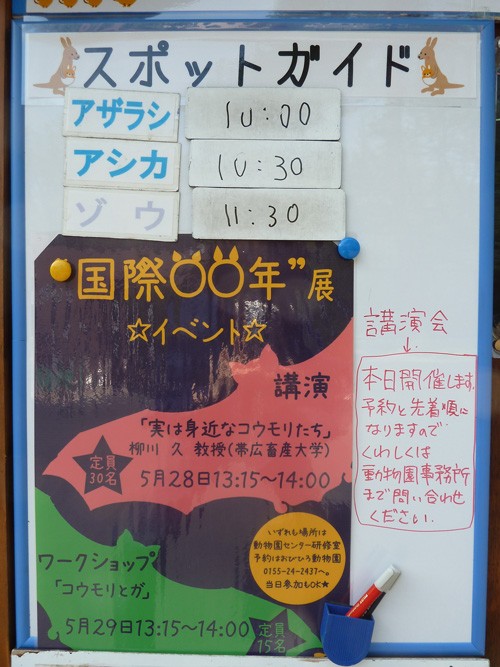 スポットガイド
アザラシ 10:00
アシカ 10:30
ゾウ 11:30
"国際○○年"展
☆イベント☆
講演
「実は身近なコウモリたち」
柳川 久 教授(帯広畜産大学)
定員
30名
5月28日13:15~14:00
いずれも場所は
動物園センター研修室
予約はおびひろ動物園
0155-24-2437へ。
当日参加もOK★
ワークショップ
「コウモリとが」
5月29日13:15~14:00
定員
15名
講演会
↓
本日開催します。
予約と先着順に
なりますので
くわしくは
動物園事務所
まで問い合わせ
ください.